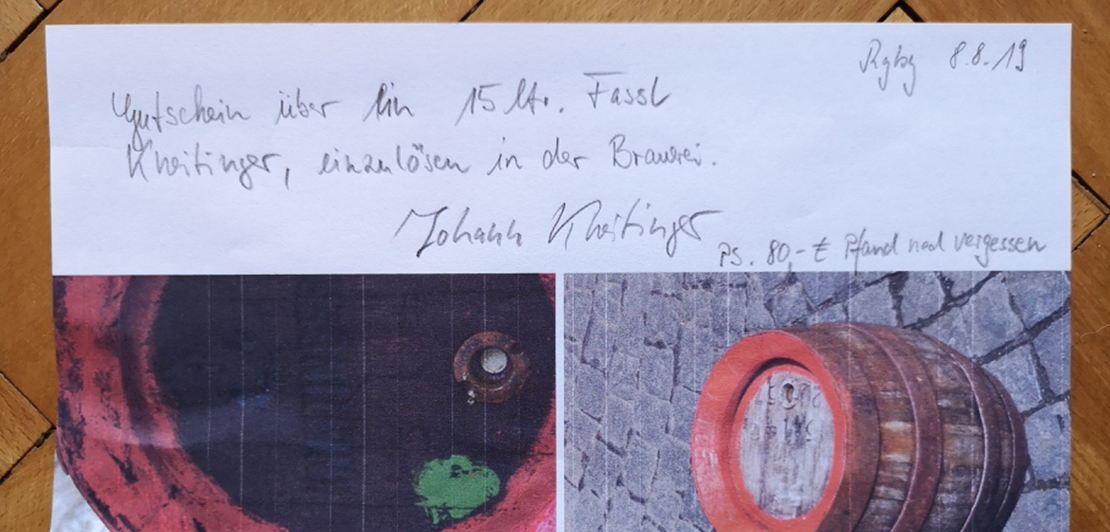 Rgbg 8.8.19
Gutschein über ein 15 ltr. Fassl
Kneitinger, einzulösen in der Brauerei.
Johann Kneitinger
Ps. 80,- € Pfand ned vergessen